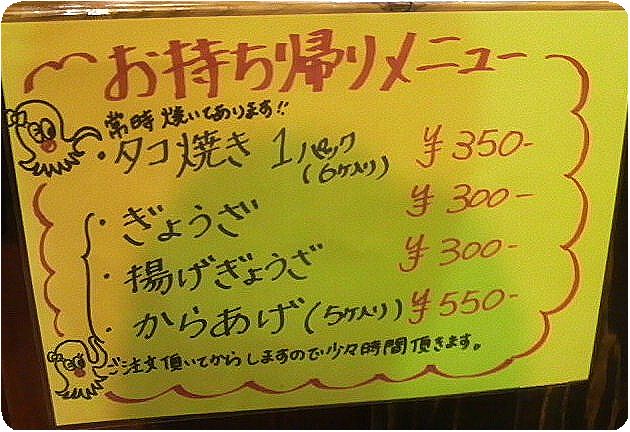 お持ち帰りメニュー
常時焼いてあります!!
・タコ焼き 1パック (6ケ入り) ¥350-
・ぎょうざ ¥300-
・揚げぎょうざ ¥300-
・からあげ(5ケ入り) ¥550-
ご注文頂いてからしますので少々時間頂きます。